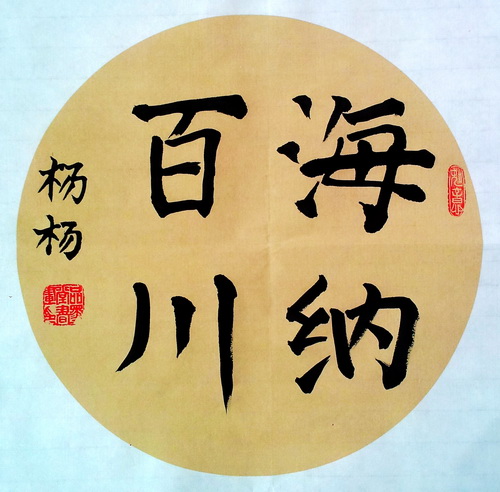 海纳
百川
杨杨